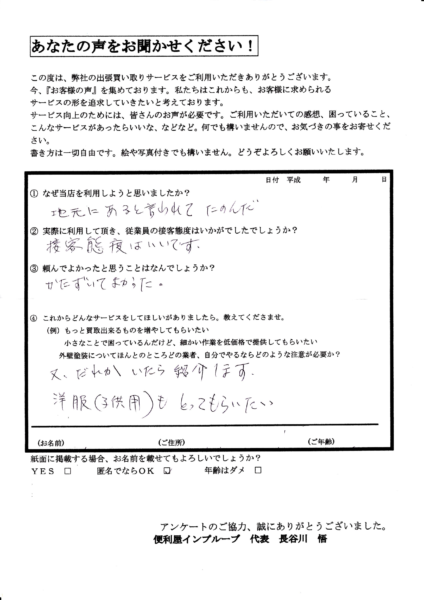 あなたの声をお聞かせください！
この度は、弊社の出張買い取りサービスをご利用いただきありがとうございます。
今、『お客様の声』を集めております。私たちはこれからも、お客様に求められる
サービスの形を追求していきたいと考えております。
サービス向上のためには、皆さんのお声が必要です。ご利用いただいての感想、困っていること、
こんなサービスがあったらいいな、などなど。何でも構いませんので、お気づきの事をお寄せくだ
さい。
書き方は一切自由です。絵や写真付きでも構いません。どうぞよろしくお願いいたします。
日付　平成　　年　　月　　日
① なぜ当店を利用しようと思いましたか？
地元にあると言われてたのんだ
② 実際に利用して頂き、従業員の接客態度はいかがでしたでしょうか？
接客態度はいいです.
③ 頼んでよかったと思うことはなんでしょうか？
かたずいてよかった。
④ これからどんなサービスをしてほしいがありましたら、教えてくださませ。
（例）もっと買取出来るものを増やしてもらいたい
小さなことで困っているんだけど、細かい作業を低価格で提供してもらいたい
外壁塗装についてほんとのところどの業者、自分でやるならどのような注意が必要か？
又、だれかいたら紹介します.
洋服(子供用)もとってもらいたい
（お名前）　（ご住所）　（ご年齢）
紙面に掲載する場合、お名前を載せてもよろしいでしょうか？
ＹＥＳ □　匿名でならＯＫ ☑　年齢はダメ □
アンケートのご協力、誠にありがとうございました。
便利屋インプルーブ　代表　長谷川　悟